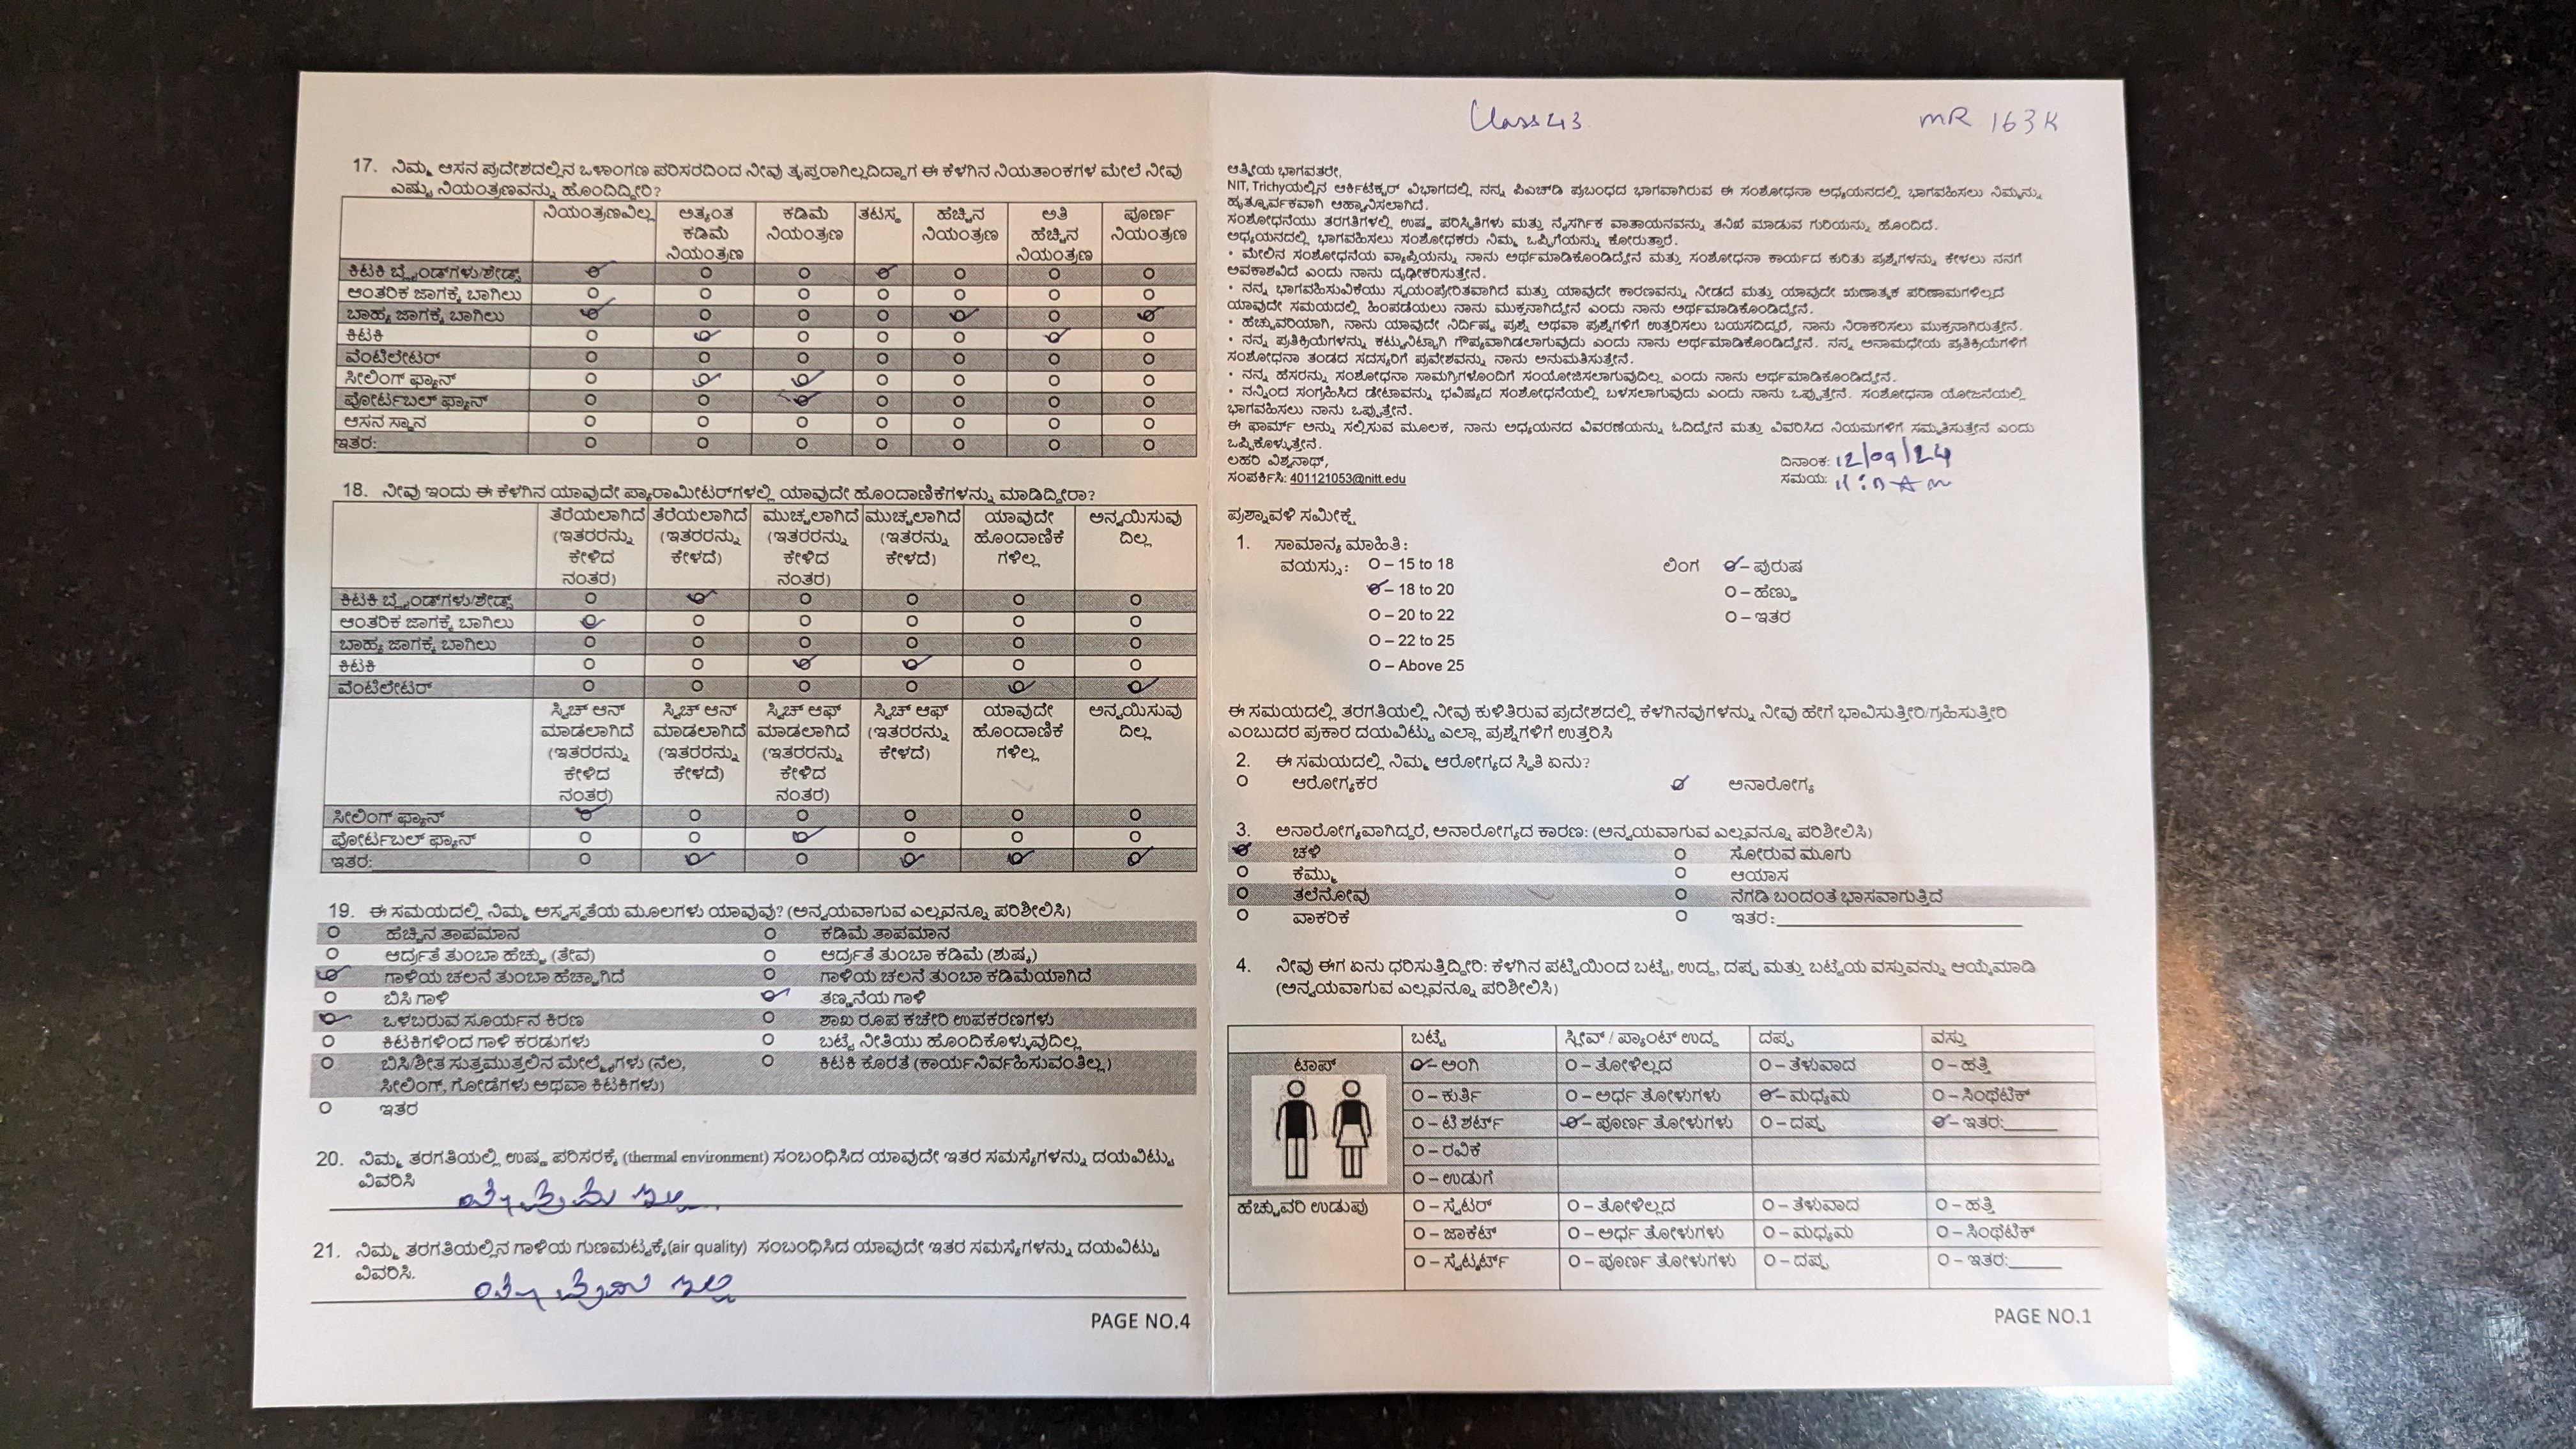 17. ನಿಮ್ಮ ಆಸನ ಪ್ರದೇಶದಲ್ಲಿನ ಒಳಾಂಗಣ ಪರಿಸರದಿಂದ ನೀವು ತೃಪ್ತರಾಗಿಲ್ಲದಿದ್ದಾಗ ಈ ಕೆಳಗಿನ ನಿಯತಾಂಕಗಳ ಮೇಲೆ ನೀವು
ಎಷ್ಟು ನಿಯಂತ್ರಣವನ್ನು ಹೊಂದಿದ್ದೀರಿ?
ನಿಯಂತ್ರಣವಿಲ್ಲ ಅತ್ಯಂತ ಕಡಿಮೆ ನಿಯಂತ್ರಣ ಕಡಿಮೆ ನಿಯಂತ್ರಣ ತಟಸ್ಥ ಹೆಚ್ಚಿನ ನಿಯಂತ್ರಣ ಅತಿ ಹೆಚ್ಚಿನ ನಿಯಂತ್ರಣ ಪೂರ್ಣ ನಿಯಂತ್ರಣ
ಕಿಟಕಿ ಬ್ಲೈಂಡ್‌ಗಳು/ಶೇಡ್ಸ್
ಆಂತರಿಕ ಜಾಗಕ್ಕೆ ಬಾಗಿಲು
ಬಾಹ್ಯ ಜಾಗಕ್ಕೆ ಬಾಗಿಲು
ಕಿಟಕಿ
ವೆಂಟಿಲೇಟರ್
ಸೀಲಿಂಗ್ ಫ್ಯಾನ್
ಪೋರ್ಟಬಲ್ ಫ್ಯಾನ್
ಆಸನ ಸ್ಥಾನ
ಇತರ:
18. ನೀವು ಇಂದು ಈ ಕೆಳಗಿನ ಯಾವುದೇ ಪ್ಯಾರಾಮೀಟರ್‌ಗಳಲ್ಲಿ ಯಾವುದೇ ಹೊಂದಾಣಿಕೆಗಳನ್ನು ಮಾಡಿದ್ದೀರಾ?
ತೆರೆಯಲಾಗಿದೆ (ಇತರರನ್ನು ಕೇಳಿದ ನಂತರ) ತೆರೆಯಲಾಗಿದೆ (ಇತರರನ್ನು ಕೇಳದೆ) ಮುಚ್ಚಲಾಗಿದೆ (ಇತರರನ್ನು ಕೇಳಿದ ನಂತರ) ಮುಚ್ಚಲಾಗಿದೆ (ಇತರನ್ನು ಕೇಳದೆ) ಯಾವುದೇ ಹೊಂದಾಣಿಕೆ ಗಳಿಲ್ಲ ಅನ್ವಯಿಸುವು ದಿಲ್ಲ
ಕಿಟಕಿ ಬ್ಲೈಂಡ್‌ಗಳು/ಶೇಡ್ಸ್
ಆಂತರಿಕ ಜಾಗಕ್ಕೆ ಬಾಗಿಲು
ಬಾಹ್ಯ ಜಾಗಕ್ಕೆ ಬಾಗಿಲು
ಕಿಟಕಿ
ವೆಂಟಿಲೇಟರ್
ಸ್ವಿಚ್ ಆನ್ ಮಾಡಲಾಗಿದೆ (ಇತರರನ್ನು ಕೇಳಿದ ನಂತರ) ಸ್ವಿಚ್ ಆನ್ ಮಾಡಲಾಗಿದೆ (ಇತರರನ್ನು ಕೇಳದೆ) ಸ್ವಿಚ್ ಆಫ್ ಮಾಡಲಾಗಿದೆ (ಇತರರನ್ನು ಕೇಳಿದ ನಂತರ) ಸ್ವಿಚ್ ಆಫ್ (ಇತರರನ್ನು ಕೇಳದೆ) ಯಾವುದೇ ಹೊಂದಾಣಿಕೆ ಗಳಿಲ್ಲ ಅನ್ವಯಿಸುವು ದಿಲ್ಲ
ಸೀಲಿಂಗ್ ಫ್ಯಾನ್
ಪೋರ್ಟಬಲ್ ಫ್ಯಾನ್
ಇತರ:
19. ಈ ಸಮಯದಲ್ಲಿ ನಿಮ್ಮ ಅಸ್ವಸ್ಥತೆಯ ಮೂಲಗಳು ಯಾವುವು? (ಅನ್ವಯವಾಗುವ ಎಲ್ಲವನ್ನೂ ಪರಿಶೀಲಿಸಿ)
ಹೆಚ್ಚಿನ ತಾಪಮಾನ ಕಡಿಮೆ ತಾಪಮಾನ
ಆರ್ದ್ರತೆ ತುಂಬಾ ಹೆಚ್ಚು (ತೇವ) ಆರ್ದ್ರತೆ ತುಂಬಾ ಕಡಿಮೆ (ಶುಷ್ಕ)
ಗಾಳಿಯ ಚಲನೆ ತುಂಬಾ ಹೆಚ್ಚಾಗಿದೆ ಗಾಳಿಯ ಚಲನೆ ತುಂಬಾ ಕಡಿಮೆಯಾಗಿದೆ
ಬಿಸಿ ಗಾಳಿ ತಣ್ಣನೆಯ ಗಾಳಿ
ಒಳಬರುವ ಸೂರ್ಯನ ಕಿರಣ ಶಾಖ ರೂಪ ಕಚೇರಿ ಉಪಕರಣಗಳು
ಕಿಟಕಿಗಳಿಂದ ಗಾಳಿ ಕರಡುಗಳು ಬಟ್ಟೆ ನೀತಿಯು ಹೊಂದಿಕೊಳ್ಳುವುದಿಲ್ಲ
ಬಿಸಿ/ಶೀತ ಸುತ್ತಮುತ್ತಲಿನ ಮೇಲ್ಮೈಗಳು (ನೆಲ, ಕಿಟಕಿ ಕೊರತೆ (ಕಾರ್ಯನಿರ್ವಹಿಸುವಂತಿಲ್ಲ)
ಸೀಲಿಂಗ್, ಗೋಡೆಗಳು ಅಥವಾ ಕಿಟಕಿಗಳು)
ಇತರ
20. ನಿಮ್ಮ ತರಗತಿಯಲ್ಲಿ ಉಷ್ಣ ಪರಿಸರಕ್ಕೆ (thermal environment) ಸಂಬಂಧಿಸಿದ ಯಾವುದೇ ಇತರ ಸಮಸ್ಯೆಗಳನ್ನು ದಯವಿಟ್ಟು
ವಿವರಿಸಿ
ಇಲ್ಲ
21. ನಿಮ್ಮ ತರಗತಿಯಲ್ಲಿನ ಗಾಳಿಯ ಗುಣಮಟ್ಟಕ್ಕೆ(air quality) ಸಂಬಂಧಿಸಿದ ಯಾವುದೇ ಇತರ ಸಮಸ್ಯೆಗಳನ್ನು ದಯವಿಟ್ಟು
ವಿವರಿಸಿ.
ಇಲ್ಲ
PAGE NO.4
Class 43 MR 163K
ಆತ್ಮೀಯ ಭಾಗವತರೇ,
NIT, Trichyಯಲ್ಲಿನ ಆರ್ಕಿಟೆಕ್ಚರ್ ವಿಭಾಗದಲ್ಲಿ ನನ್ನ ಪಿಎಚ್‌ಡಿ ಪ್ರಬಂಧದ ಭಾಗವಾಗಿರುವ ಈ ಸಂಶೋಧನಾ ಅಧ್ಯಯನದಲ್ಲಿ ಭಾಗವಹಿಸಲು ನಿಮ್ಮನ್ನು
ಹೃತ್ಪೂರ್ವಕವಾಗಿ ಆಹ್ವಾನಿಸಲಾಗಿದೆ.
ಸಂಶೋಧನೆಯು ತರಗತಿಗಳಲ್ಲಿ ಉಷ್ಣ ಪರಿಸ್ಥಿತಿಗಳು ಮತ್ತು ನೈಸರ್ಗಿಕ ವಾತಾಯನವನ್ನು ತನಿಖೆ ಮಾಡುವ ಗುರಿಯನ್ನು ಹೊಂದಿದೆ.
ಅಧ್ಯಯನದಲ್ಲಿ ಭಾಗವಹಿಸಲು ಸಂಶೋಧಕರು ನಿಮ್ಮ ಒಪ್ಪಿಗೆಯನ್ನು ಕೋರುತ್ತಾರೆ.
• ಮೇಲಿನ ಸಂಶೋಧನೆಯ ವ್ಯಾಪ್ತಿಯನ್ನು ನಾನು ಅರ್ಥಮಾಡಿಕೊಂಡಿದ್ದೇನೆ ಮತ್ತು ಸಂಶೋಧನಾ ಕಾರ್ಯದ ಕುರಿತು ಪ್ರಶ್ನೆಗಳನ್ನು ಕೇಳಲು ನನಗೆ
ಅವಕಾಶವಿದೆ ಎಂದು ನಾನು ದೃಢೀಕರಿಸುತ್ತೇನೆ.
• ನನ್ನ ಭಾಗವಹಿಸುವಿಕೆಯು ಸ್ವಯಂಪ್ರೇರಿತವಾಗಿದೆ ಮತ್ತು ಯಾವುದೇ ಕಾರಣವನ್ನು ನೀಡದೆ ಮತ್ತು ಯಾವುದೇ ಋಣಾತ್ಮಕ ಪರಿಣಾಮಗಳಿಲ್ಲದೆ
ಯಾವುದೇ ಸಮಯದಲ್ಲಿ ಹಿಂಪಡೆಯಲು ನಾನು ಮುಕ್ತನಾಗಿದ್ದೇನೆ ಎಂದು ನಾನು ಅರ್ಥಮಾಡಿಕೊಂಡಿದ್ದೇನೆ.
• ಹೆಚ್ಚುವರಿಯಾಗಿ, ನಾನು ಯಾವುದೇ ನಿರ್ದಿಷ್ಟ ಪ್ರಶ್ನೆ ಅಥವಾ ಪ್ರಶ್ನೆಗಳಿಗೆ ಉತ್ತರಿಸಲು ಬಯಸದಿದ್ದರೆ, ನಾನು ನಿರಾಕರಿಸಲು ಮುಕ್ತನಾಗಿರುತ್ತೇನೆ.
• ನನ್ನ ಪ್ರತಿಕ್ರಿಯೆಗಳನ್ನು ಕಟ್ಟುನಿಟ್ಟಾಗಿ ಗೌಪ್ಯವಾಗಿಡಲಾಗುವುದು ಎಂದು ನಾನು ಅರ್ಥಮಾಡಿಕೊಂಡಿದ್ದೇನೆ. ನನ್ನ ಅನಾಮಧೇಯ ಪ್ರತಿಕ್ರಿಯೆಗಳಿಗೆ
ಸಂಶೋಧನಾ ತಂಡದ ಸದಸ್ಯರಿಗೆ ಪ್ರವೇಶವನ್ನು ನಾನು ಅನುಮತಿಸುತ್ತೇನೆ.
• ನನ್ನ ಹೆಸರನ್ನು ಸಂಶೋಧನಾ ಸಾಮಗ್ರಿಗಳೊಂದಿಗೆ ಸಂಯೋಜಿಸಲಾಗುವುದಿಲ್ಲ ಎಂದು ನಾನು ಅರ್ಥಮಾಡಿಕೊಂಡಿದ್ದೇನೆ.
• ನನ್ನಿಂದ ಸಂಗ್ರಹಿಸಿದ ಡೇಟಾವನ್ನು ಭವಿಷ್ಯದ ಸಂಶೋಧನೆಯಲ್ಲಿ ಬಳಸಲಾಗುವುದು ಎಂದು ನಾನು ಒಪ್ಪುತ್ತೇನೆ. ಸಂಶೋಧನಾ ಯೋಜನೆಯಲ್ಲಿ
ಭಾಗವಹಿಸಲು ನಾನು ಒಪ್ಪುತ್ತೇನೆ.
ಈ ಫಾರ್ಮ್ ಅನ್ನು ಸಲ್ಲಿಸುವ ಮೂಲಕ, ನಾನು ಅಧ್ಯಯನದ ವಿವರಣೆಯನ್ನು ಓದಿದ್ದೇನೆ ಮತ್ತು ವಿವರಿಸಿದ ನಿಯಮಗಳಿಗೆ ಸಮ್ಮತಿಸುತ್ತೇನೆ ಎಂದು
ಒಪ್ಪಿಕೊಳ್ಳುತ್ತೇನೆ.
ಲಹರಿ ವಿಶ್ವನಾಥ್, ದಿನಾಂಕ: 12/09/24
ಸಂಪರ್ಕಿಸಿ: 401121053@nitt.edu ಸಮಯ:
ಪ್ರಶ್ನಾವಳಿ ಸಮೀಕ್ಷೆ
1. ಸಾಮಾನ್ಯ ಮಾಹಿತಿ:
ವಯಸ್ಸು: O – 15 to 18 ಲಿಂಗ O – ಪುರುಷ
O – 18 to 20 O – ಹೆಣ್ಣು
O – 20 to 22 O – ಇತರ
O – 22 to 25
O – Above 25
ಈ ಸಮಯದಲ್ಲಿ ತರಗತಿಯಲ್ಲಿ ನೀವು ಕುಳಿತಿರುವ ಪ್ರದೇಶದಲ್ಲಿ ಕೆಳಗಿನವುಗಳನ್ನು ನೀವು ಹೇಗೆ ಭಾವಿಸುತ್ತೀರಿ/ಗ್ರಹಿಸುತ್ತೀರಿ
ಎಂಬುದರ ಪ್ರಕಾರ ದಯವಿಟ್ಟು ಎಲ್ಲಾ ಪ್ರಶ್ನೆಗಳಿಗೆ ಉತ್ತರಿಸಿ
2. ಈ ಸಮಯದಲ್ಲಿ ನಿಮ್ಮ ಆರೋಗ್ಯದ ಸ್ಥಿತಿ ಏನು?
ಆರೋಗ್ಯಕರ ಅನಾರೋಗ್ಯ
3. ಅನಾರೋಗ್ಯವಾಗಿದ್ದರೆ, ಅನಾರೋಗ್ಯದ ಕಾರಣ: (ಅನ್ವಯವಾಗುವ ಎಲ್ಲವನ್ನೂ ಪರಿಶೀಲಿಸಿ)
ಚಳಿ ಸೋರುವ ಮೂಗು
ಕೆಮ್ಮು ಆಯಾಸ
ತಲೆನೋವು ನೆಗಡಿ ಬಂದಂತೆ ಭಾಸವಾಗುತ್ತಿದೆ
ವಾಕರಿಕೆ ಇತರ:
4. ನೀವು ಈಗ ಏನು ಧರಿಸುತ್ತಿದ್ದೀರಿ: ಕೆಳಗಿನ ಪಟ್ಟಿಯಿಂದ ಬಟ್ಟೆ, ಉದ್ದ, ದಪ್ಪ ಮತ್ತು ಬಟ್ಟೆಯ ವಸ್ತುವನ್ನು ಆಯ್ಕೆಮಾಡಿ
(ಅನ್ವಯವಾಗುವ ಎಲ್ಲವನ್ನೂ ಪರಿಶೀಲಿಸಿ)
ಬಟ್ಟೆ ಸ್ಲೀವ್ / ಪ್ಯಾಂಟ್ ಉದ್ದ ದಪ್ಪ ವಸ್ತು
ಟಾಪ್ O – ಅಂಗಿ O – ತೋಳಿಲ್ಲದ O – ತೆಳುವಾದ O – ಹತ್ತಿ
O – ಕುರ್ತಿ O – ಅರ್ಧ ತೋಳುಗಳು O – ಮಧ್ಯಮ O – ಸಿಂಥೆಟಿಕ್
O – ಟಿ ಶರ್ಟ್ O – ಪೂರ್ಣ ತೋಳುಗಳು O – ದಪ್ಪ O – ಇತರ:
O – ರವಿಕೆ
O – ಉಡುಗೆ
ಹೆಚ್ಚುವರಿ ಉಡುಪು O – ಸ್ವೆಟರ್ O – ತೋಳಿಲ್ಲದ O – ತೆಳುವಾದ O – ಹತ್ತಿ
O – ಜಾಕೆಟ್ O – ಅರ್ಧ ತೋಳುಗಳು O – ಮಧ್ಯಮ O – ಸಿಂಥೆಟಿಕ್
O – ಸ್ವೆಟ್ಶರ್ಟ್ O – ಪೂರ್ಣ ತೋಳುಗಳು O – ದಪ್ಪ O – ಇತರ:
PAGE NO.1